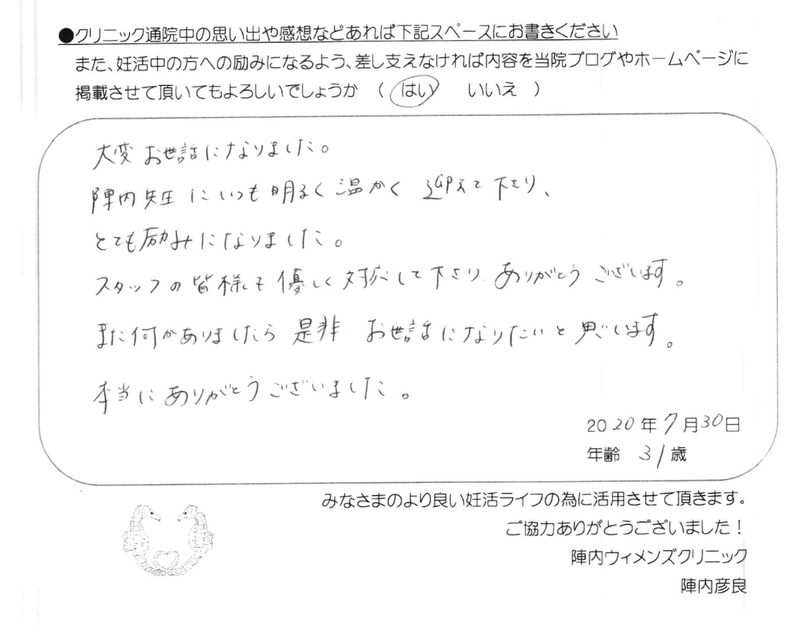 ●クリニック通院中の思い出や感想などあれば下記スペースにお書きください
また、妊活中の方への励みになるよう、差し支えなければ内容を当院ブログやホームページに
掲載させて頂いてもよろしいでしょうか （ はい いいえ ）
大変お世話になりました。
陣内先生にいつも明るく温かく迎えて下さり、
とても励みになりました。
スタッフの皆様も優しく対応して下さり、ありがとうございます。
また何かありましたら是非 お世話になりたいと思います。
本当にありがとうございました。
2020年7月30日
年齢 31歳
みなさまのより良い妊活ライフの為に活用させて頂きます。
ご協力ありがとうございました！
陣内ウィメンズクリニック
陣内彦良